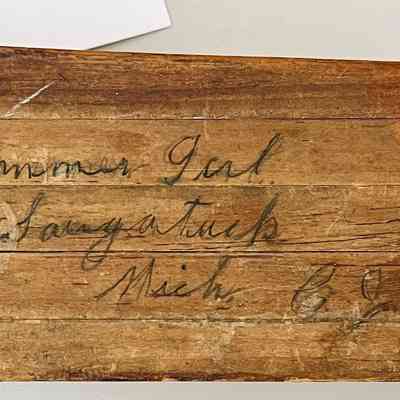 mmer Girl
Saugatuck
Mich